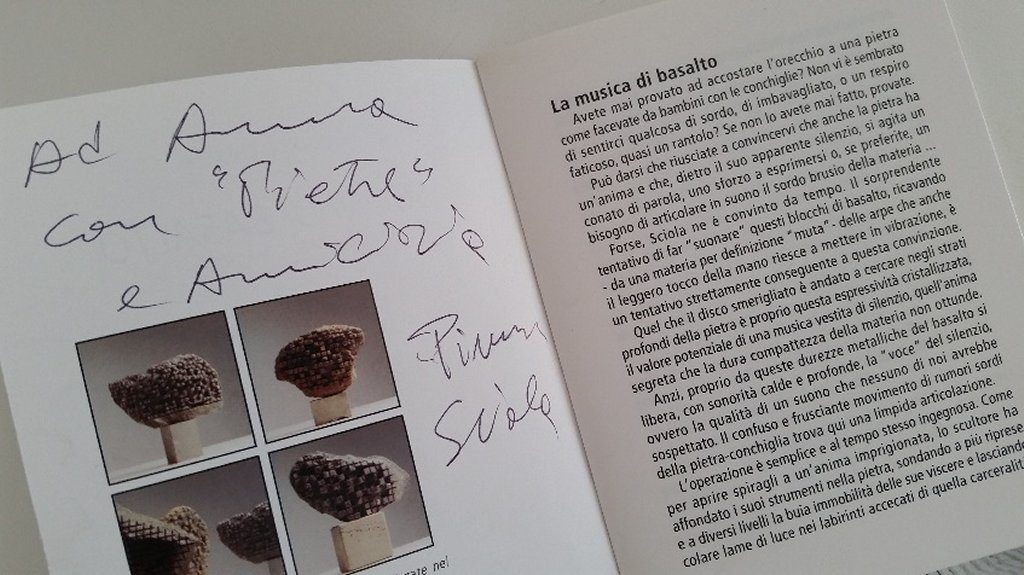 Ad Anna
con "Pietre"
e Amicizia
Pinuccio
Sciola
nate nel
La musica di basalto
Avete mai provato ad accostare l'orecchio a una pietra
come facevate da bambini con le conchiglie? Non vi è sembrato
di sentirci qualcosa di sordo, di imbavagliato, o un respiro
faticoso, quasi un rantolo? Se non lo avete mai fatto, provate.
Può darsi che riusciate a convincervi che anche la pietra ha
un'anima e che, dietro il suo apparente silenzio, si agita un
conato di parola, uno sforzo a esprimersi o, se preferite, un
bisogno di articolare in suono il sordo brusio della materia ...
Forse, Sciola ne è convinto da tempo. Il sorprendente
tentativo di far "suonare" questi blocchi di basalto, ricavando
- da una materia per definizione "muta" - delle arpe che anche
il leggero tocco della mano riesce a mettere in vibrazione, è
un tentativo strettamente conseguente a questa convinzione.
Quel che il disco smerigliato è andato a cercare negli strati
profondi della pietra è proprio questa espressività cristallizzata,
il valore potenziale di una musica vestita di silenzio, quell'anima
segreta che la dura compattezza della materia non ottunde.
Anzi, proprio da queste durezze metalliche del basalto si
libera, con sonorità calde e profonde, la "voce" del silenzio,
ovvero la qualità di un suono che nessuno di noi avrebbe
sospettato. Il confuso e frusciante movimento di rumori sordi
della pietra-conchiglia trova qui una limpida articolazione.
L'operazione è semplice e al tempo stesso ingegnosa. Come
per aprire spiragli a un'anima imprigionata, lo scultore ha
affondato i suoi strumenti nella pietra, sondando a più riprese
e a diversi livelli la buia immobilità delle sue viscere e lasciando
colare lame di luce nei labirinti accecati di quella carceralit